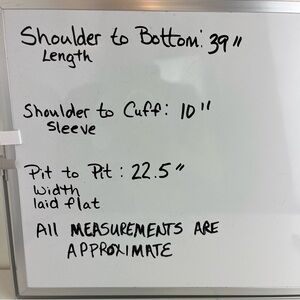 Shoulder to Bottom: 39"
Length
Shoulder to Cuff: 10"
Sleeve
Pit to Pit: 22.5"
Width
laid flat
All MEASUREMENTS ARE
APPROXIMATE